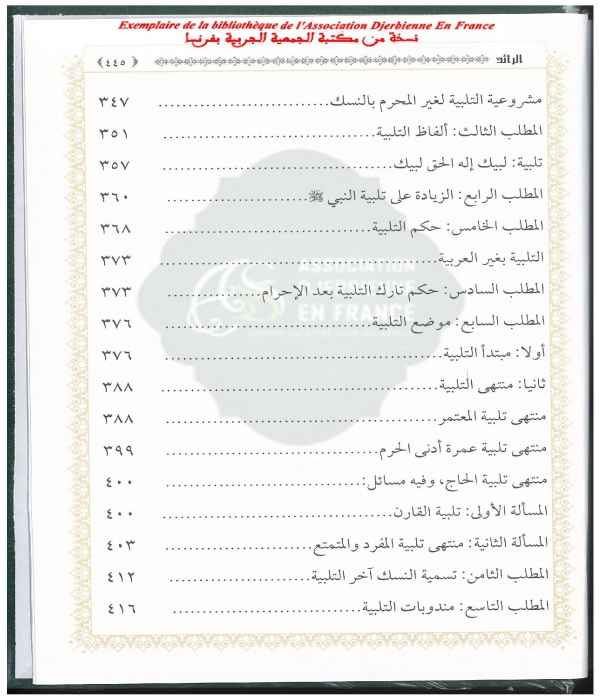 Exemplaire de la bibliothèque de l'Association Djerbienne En France
نسخة من مكتبة الجمعية الجربية بفرنسا
الرائد ﴿٤٤٥﴾
مشروعية التلبية لغير المحرم بالنسك .............................. ٣٤٧
المطلب الثالث: ألفاظ التلبية .............................. ٣٥١
تلبية: لبيك إله الحق لبيك .............................. ٣٥٧
المطلب الرابع: الزيادة على تلبية النبي ﷺ .............................. ٣٦٠
المطلب الخامس: حكم التلبية .............................. ٣٦٨
التلبية بغير العربية .............................. ٣٧٣
المطلب السادس: حكم تارك التلبية بعد الإحرام .............................. ٣٧٣
المطلب السابع: موضع التلبية .............................. ٣٧٦
أولا: مبتدأ التلبية .............................. ٣٧٦
ثانيا: منتهى التلبية .............................. ٣٨٨
منتهى تلبية المعتمر .............................. ٣٨٨
منتهى تلبية عمرة أدنى الحرم .............................. ٣٩٩
منتهى تلبية الحاج، وفيه مسائل: .............................. ٤٠٠
المسألة الأولى: تلبية القارن .............................. ٤٠٠
المسألة الثانية: منتهى تلبية المفرد والمتمتع .............................. ٤٠٣
المطلب الثامن: تسمية النسك آخر التلبية .............................. ٤١٢
المطلب التاسع: مندوبات التلبية .............................. ٤١٦
ASSOCIATION
DJERBIENNE
EN FRANCE